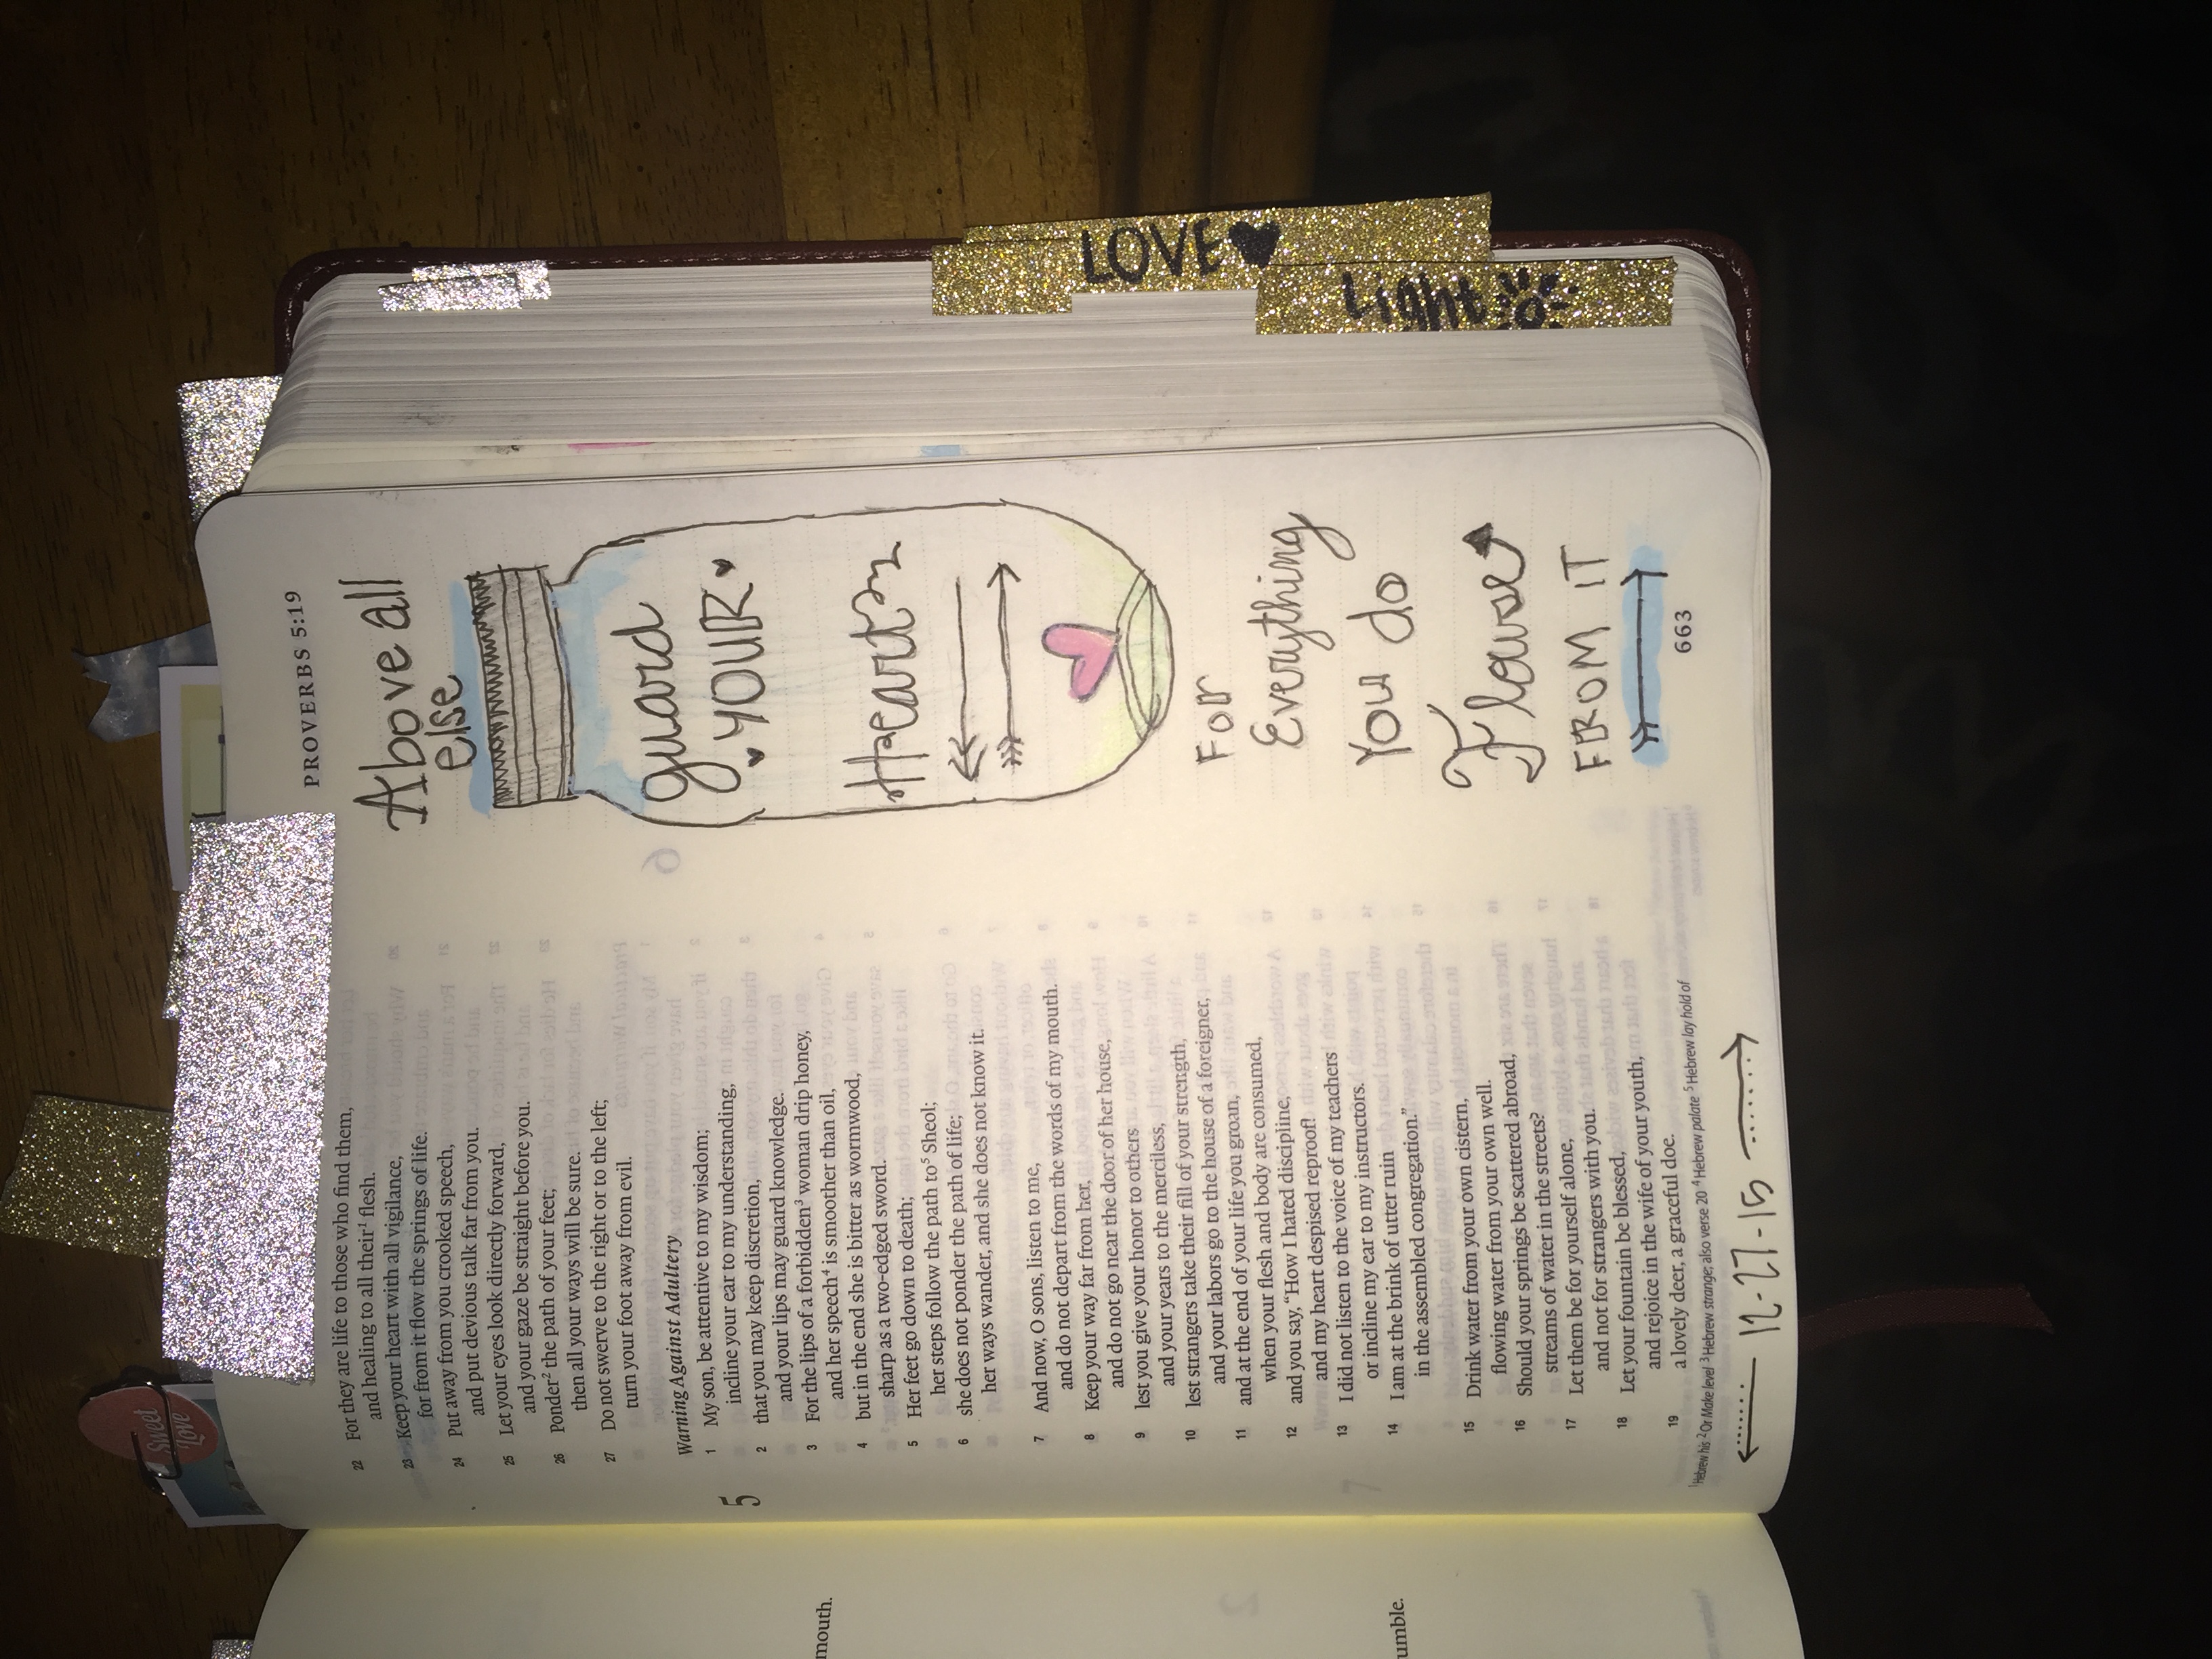 PROVERBS 5:19
22 For they are life to those who find them,
and healing to all their¹ flesh.
23 Keep your heart with all vigilance,
for from it flow the springs of life.
24 Put away from you crooked speech,
and put devious talk far from you.
25 Let your eyes look directly forward,
and your gaze be straight before you.
26 Ponder² the path of your feet;
then all your ways will be sure.
27 Do not swerve to the right or to the left;
turn your foot away from evil.
Warning Against Adultery
5
1 My son, be attentive to my wisdom;
incline your ear to my understanding,
2 that you may keep discretion,
and your lips may guard knowledge.
3 For the lips of a forbidden³ woman drip honey,
and her speech⁴ is smoother than oil,
4 but in the end she is bitter as wormwood,
sharp as a two-edged sword.
5 Her feet go down to death;
her steps follow the path to⁵ Sheol;
6 she does not ponder the path of life;
her ways wander, and she does not know it.
7 And now, O sons, listen to me,
and do not depart from the words of my mouth.
8 Keep your way far from her,
and do not go near the door of her house,
9 lest you give your honor to others
and your years to the merciless,
10 lest strangers take their fill of your strength,
and your labors go to the house of a foreigner,
11 and at the end of your life you groan,
when your flesh and body are consumed,
12 and you say, “How I hated discipline,
and my heart despised reproof!
13 I did not listen to the voice of my teachers
or incline my ear to my instructors.
14 I am at the brink of utter ruin
in the assembled congregation.”
15 Drink water from your own cistern,
flowing water from your own well.
16 Should your springs be scattered abroad,
streams of water in the streets?
17 Let them be for yourself alone,
and not for strangers with you.
18 Let your fountain be blessed,
and rejoice in the wife of your youth,
19 a lovely deer, a graceful doe.
¹Hebrew his ²Or Make level ³Hebrew strange; also verse 20 ⁴Hebrew palate ⁵Hebrew lay hold of
12-27-15
Above all
else
guard
YOUR
Heart
For
Everything
You do
Flows
FROM IT
663
LOVE
Light
Sweet
Love
mouth.
umble.